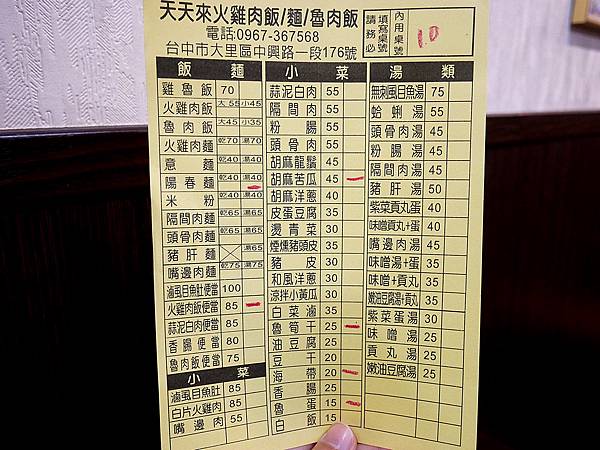 天天來火雞肉飯/麵/魯肉飯
電話:0967-367568
台中市大里區中興路一段176號
請務必填寫桌號
內用桌號
10
飯 麵
雞魯飯 70
火雞肉飯 大55 小45
魯肉飯 大45 小35
火雞肉麵 乾70 湯70
意麵 乾40 湯40
陽春麵 乾40 湯40
米粉 乾40 湯40
隔間肉麵 乾65 湯65
頭骨肉麵 乾65 湯65
豬肝麵 湯65
嘴邊肉麵 乾75 湯75
滷虱目魚肚便當 100
火雞肉便當 85
蒜泥白肉便當 85
香腸便當 80
魯肉飯便當 75
小菜
滷虱目魚肚 85
白片火雞肉 85
嘴邊肉 55
小菜
蒜泥白肉 55
隔間肉 55
粉腸 55
頭骨肉 55
胡麻龍鬚 45
胡麻苦瓜 45
胡麻洋蔥 40
皮蛋豆腐 35
燙青菜 30
煙燻豬頭皮 35
豬皮 30
和風洋蔥 30
涼拌小黃瓜 30
白菜滷 35
魯筍干 25
油豆腐 25
豆干 20
海帶 20
香腸 25
魯蛋 15
白飯 15
湯類
無刺風目魚湯 75
蛤蜊湯 55
頭骨肉湯 45
粉腸湯 45
隔間肉湯 45
豬肝湯 50
紫菜貢丸蛋 40
味噌貢丸+蛋 40
嘴邊肉湯 45
味噌湯+蛋 35
味噌+貢丸 35
嫩油豆腐湯+貢丸 35
紫菜蛋湯 30
味噌湯 25
貢丸湯 25
嫩油豆腐湯 25